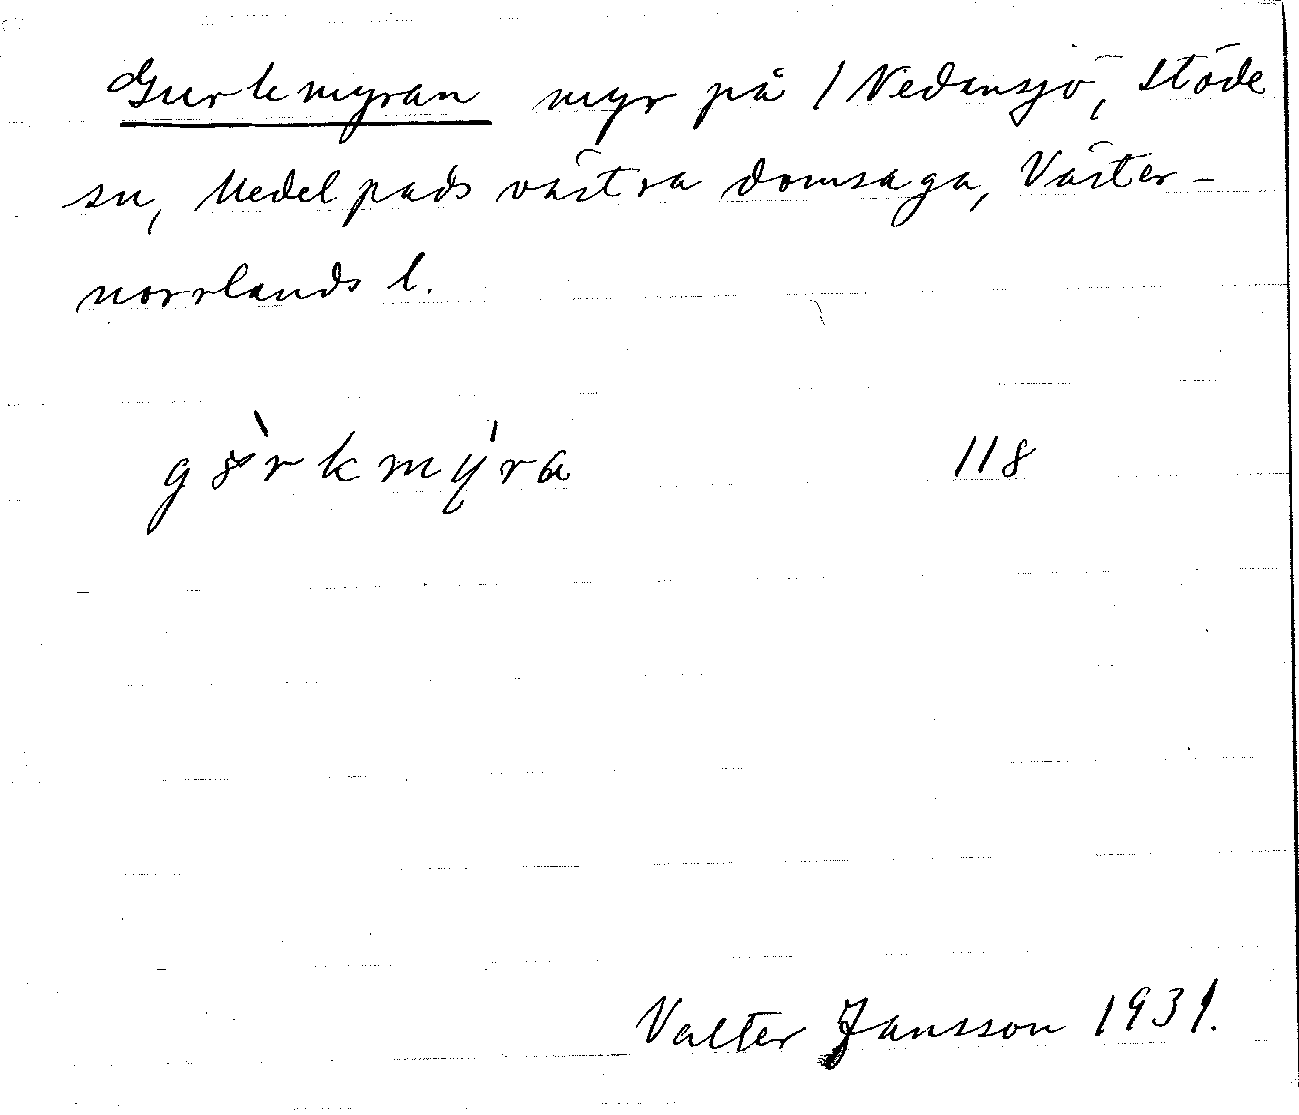 Gurkmyran myr på 1 Nedansjö, Stöde
sn, Medelpads västra domsaga, Väster-
norrlands l.
gȣ̀rkmýra 118
Valter Jansson 1931.